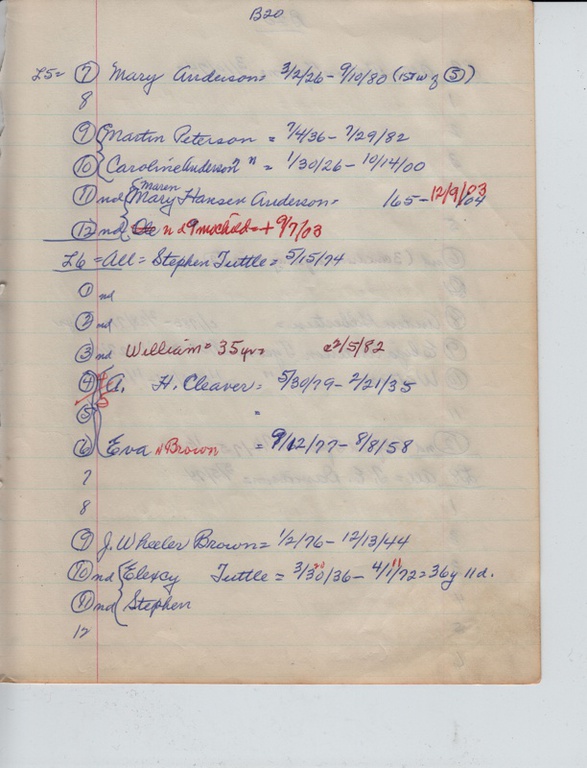 B20
L5= 7 Mary Anderson = 3/2/26 - 9/10/80 (1st w of 5)
8
9 Martin Peterson = 7/4/36 - 7/29/82
10 Caroline Anderson " = 1/30/26 - 10/14/00
Maren
11 nd Mary Hansen Anderson - /65 - 12/9/03 /04
12 nd nd 9 mo child = + 9/7/03
L6 = All = Stephen Tuttle = 5/15/74
1 nd
2 nd
3 nd William = 35 yrs 2/5/82
4 A. H. Cleaver = 5/30/79 - 2/21/35
5 =
6 Eva N Brown = 9/12/77 - 8/8/58
7
8
9 J. Wheeler Brown = 1/2/76 - 12/13/44
10 nd Elexcy Tuttle = 3/30/36 - 4/1/72 = 36y 11d.
11 nd Stephen
12